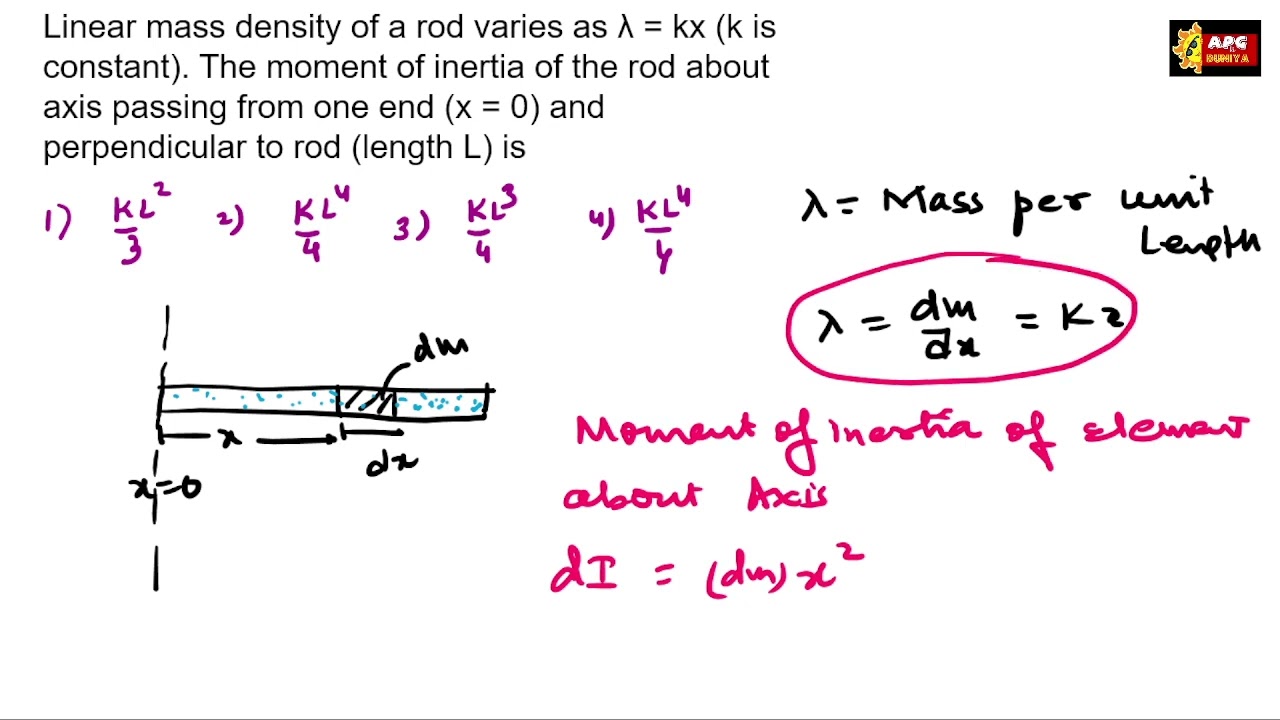 Linear mass density of a rod varies as λ = kx (k is
constant). The moment of inertia of the rod about
axis passing from one end (x = 0) and
perpendicular to rod (length L) is
APG
DUNIYA
1) KL²/3 2) KL⁴/4 3) KL³/4 4) KL⁴/4
λ = Mass per unit
Length
λ = dm/dx = Kx
dm
x
dx
x=0
Moment of inertia of element
about Axis
dI = (dm)x²